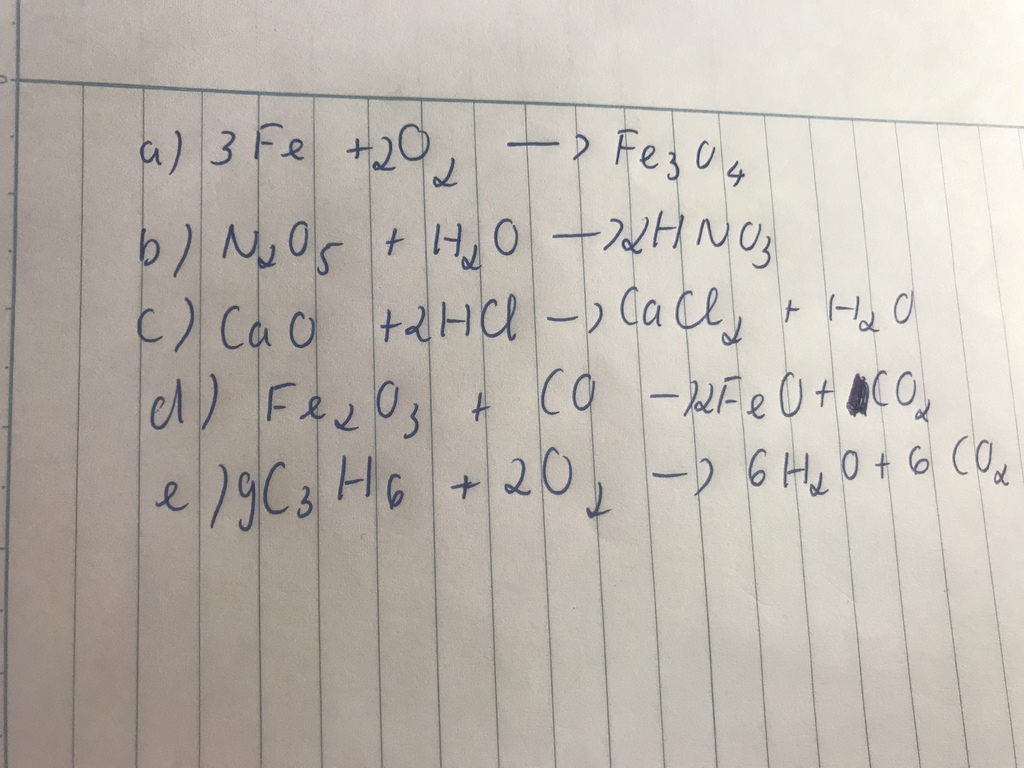 a) 3 Fe + 2O₂ → Fe₃O₄
b) N₂O₅ + H₂O → 2HNO₃
c) CaO + 2HCl → CaCl₂ + H₂O
d) Fe₂O₃ + CO → 2FeO + CO₂
e) 9C₃H₆ + 2O₂ → 6H₂O + 6CO₂